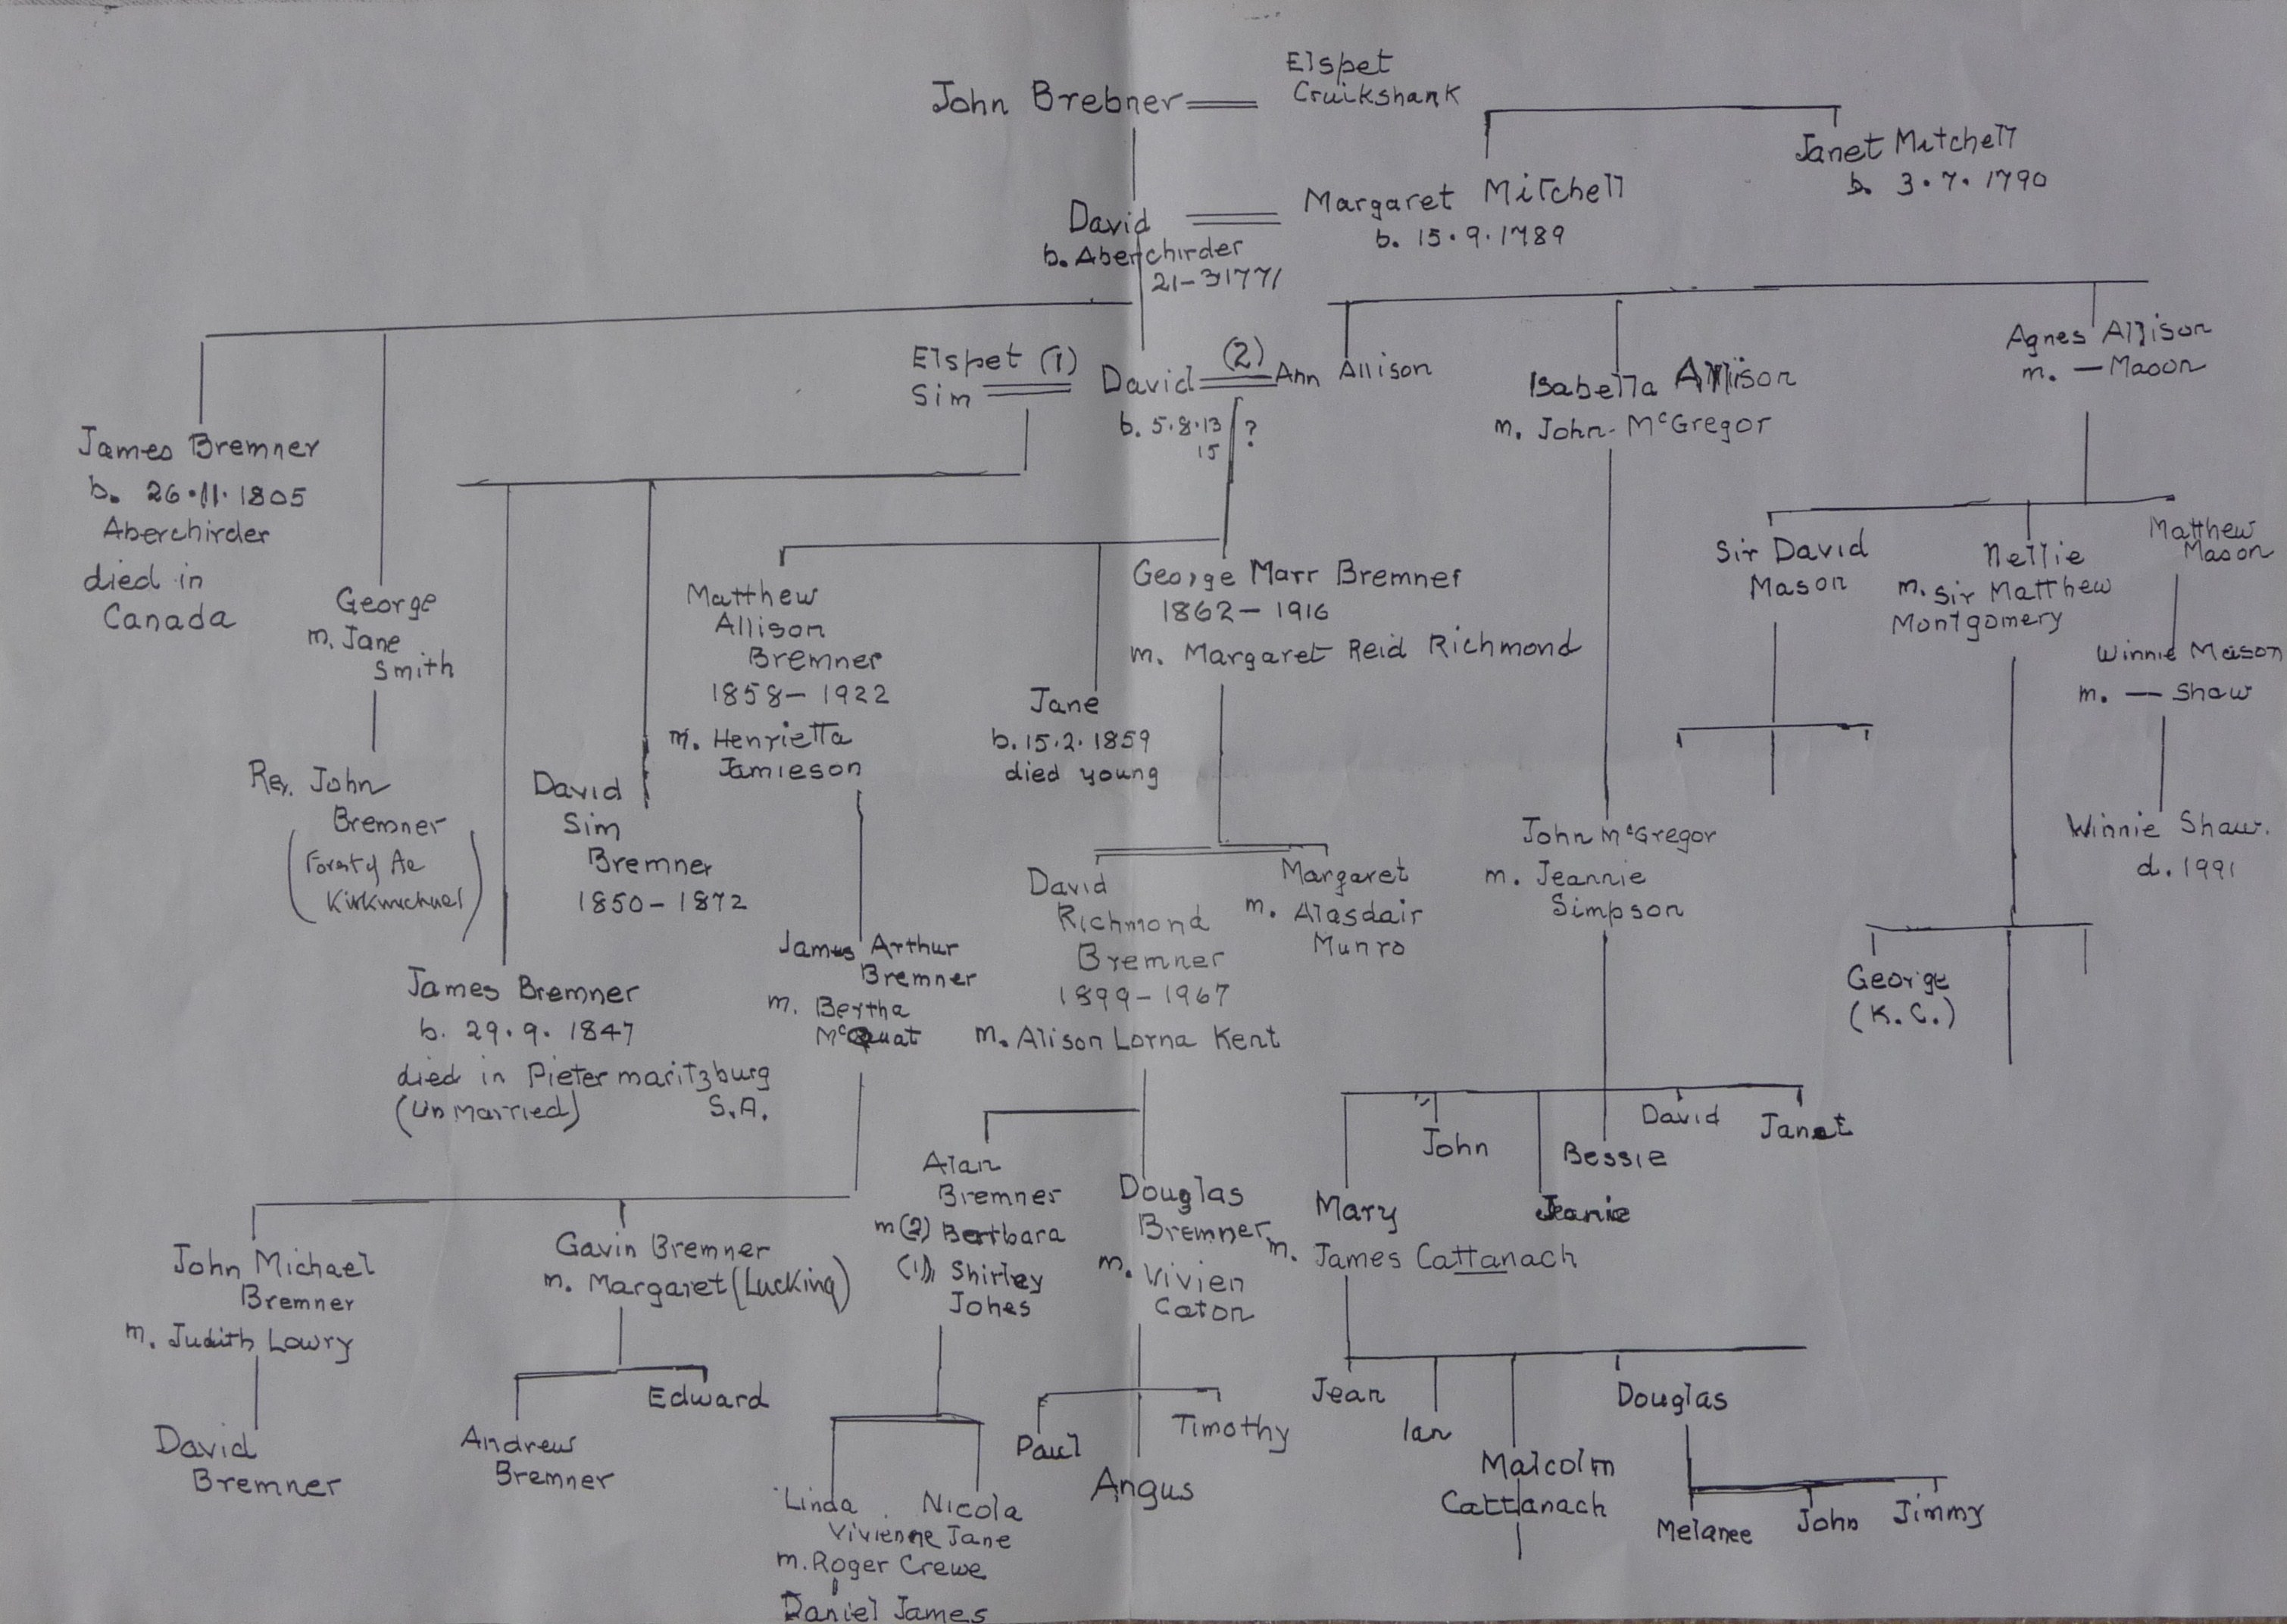 John Brebner
Elspet
Cruikshank
Janet Mitchell
b. 3.7.1790
David
b. Aberchirder
21-3 1771
Margaret Mitchell
b. 15.9.1789
Elspet (1)
Sim
David
b. 5.8.13
15
?
(2)
Ann Allison
Isabella Allison
m. John McGregor
Agnes Allison
m. — Mason
James Bremner
b. 26.11.1805
Aberchirder
died in
Canada
George
m. Jane
Smith
Matthew
Allison
Bremner
1858-1922
m. Henrietta
Jamieson
Jane
b. 15.2.1859
died young
George Marr Bremner
1862-1916
m. Margaret Reid Richmond
Sir David
Mason
Nellie
m. Sir Matthew
Montgomery
Matthew
Mason
Winnie Mason
m. — Shaw
Winnie Shaw.
d. 1991
Rev. John
Bremner
(Forest of Ae
Kirkmichael)
David
Sim
Bremner
1850-1872
James Bremner
b. 29.9.1847
died in Pietermaritzburg
(Unmarried) S.A.
James Arthur
Bremner
m. Bertha
McQuat
David
Richmond
Bremner
1899-1967
m. Alison Lorna Kent
Margaret
m. Alasdair
Munro
John McGregor
m. Jeannie
Simpson
George
(K.C.)
John Michael
Bremner
m. Judith Lowry
Gavin Bremner
m. Margaret (Lucking)
Alan
Bremner
m(2) Barbara
(1) Shirley
Jones
Douglas
Bremner
m. Vivien
Caton
Mary
m. James Cattanach
John
Jeanie
Bessie
David
Janet
David
Bremner
Andrew
Bremner
Edward
Linda
Vivienne
m. Roger Crewe
Daniel James
Nicola
Jane
Paul
Angus
Timothy
Jean
Ian
Malcolm
Cattanach
Douglas
Melanee
John
Jimmy